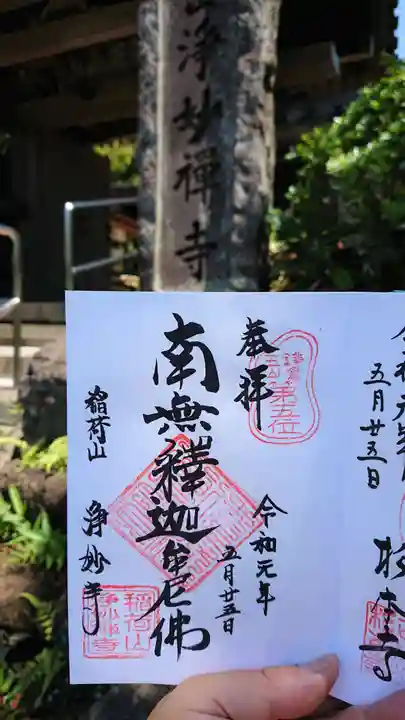 浄妙禅寺
奉拝
鎌倉五山
第五位
南無釋迦牟尼佛
令和元年
五月廿五日
稲荷山
浄妙寺
稲荷山
浄妙禅寺
令和元年
五月廿五日